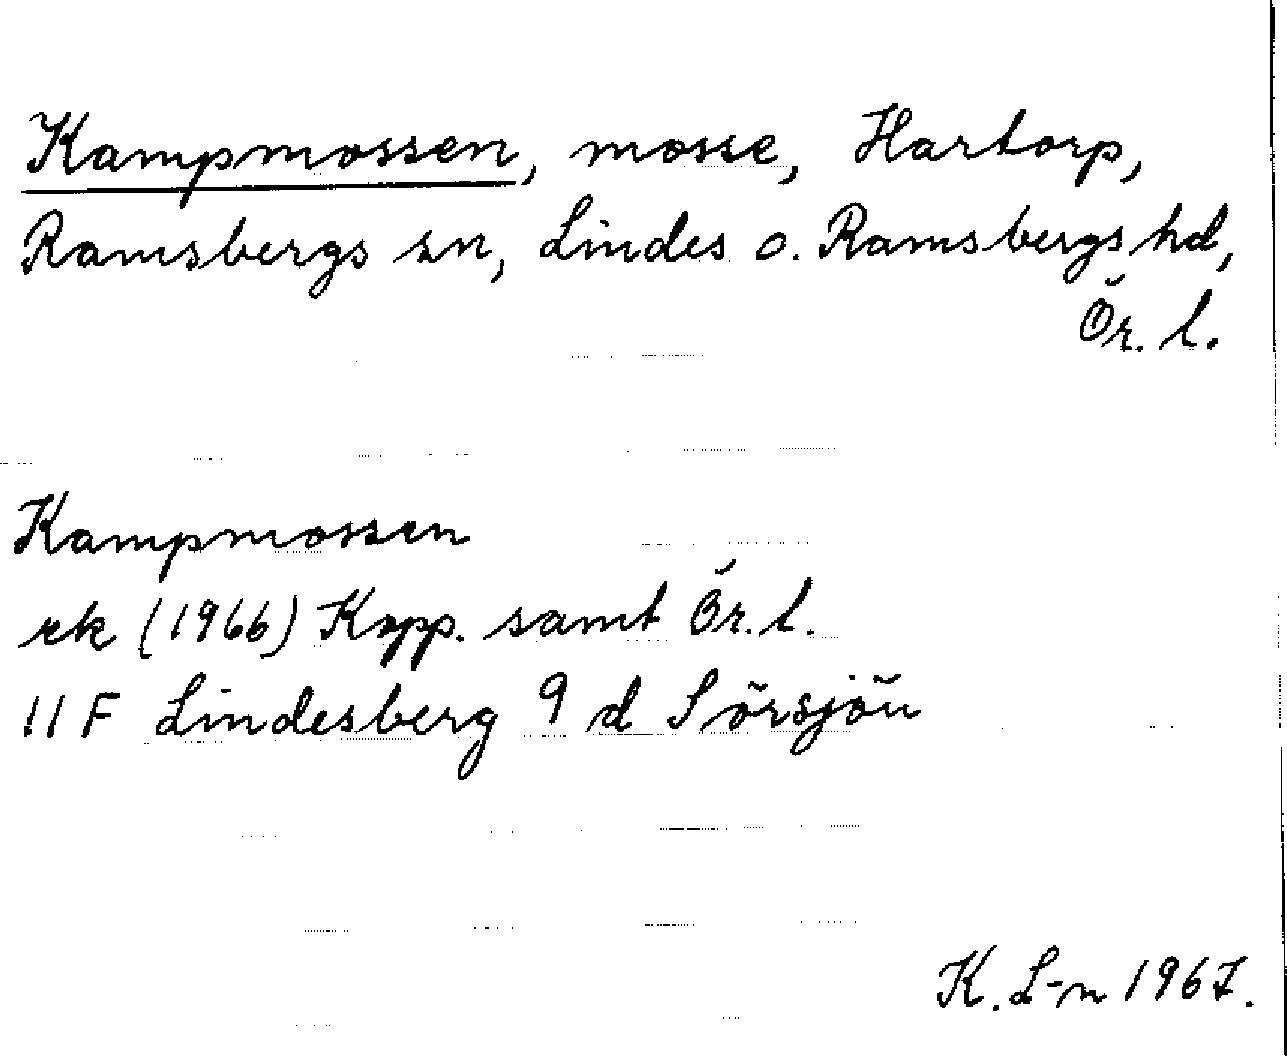 Kampmossen, mosse, Hartorp,
Ramsbergs sn, Lindes o. Ramsbergs hd,
Ör. l.
Kampmossen
rk (1966) Kopp. samt Ör. l.
11 F Lindesberg 9 d Sörsjön
K. L-n 1967.